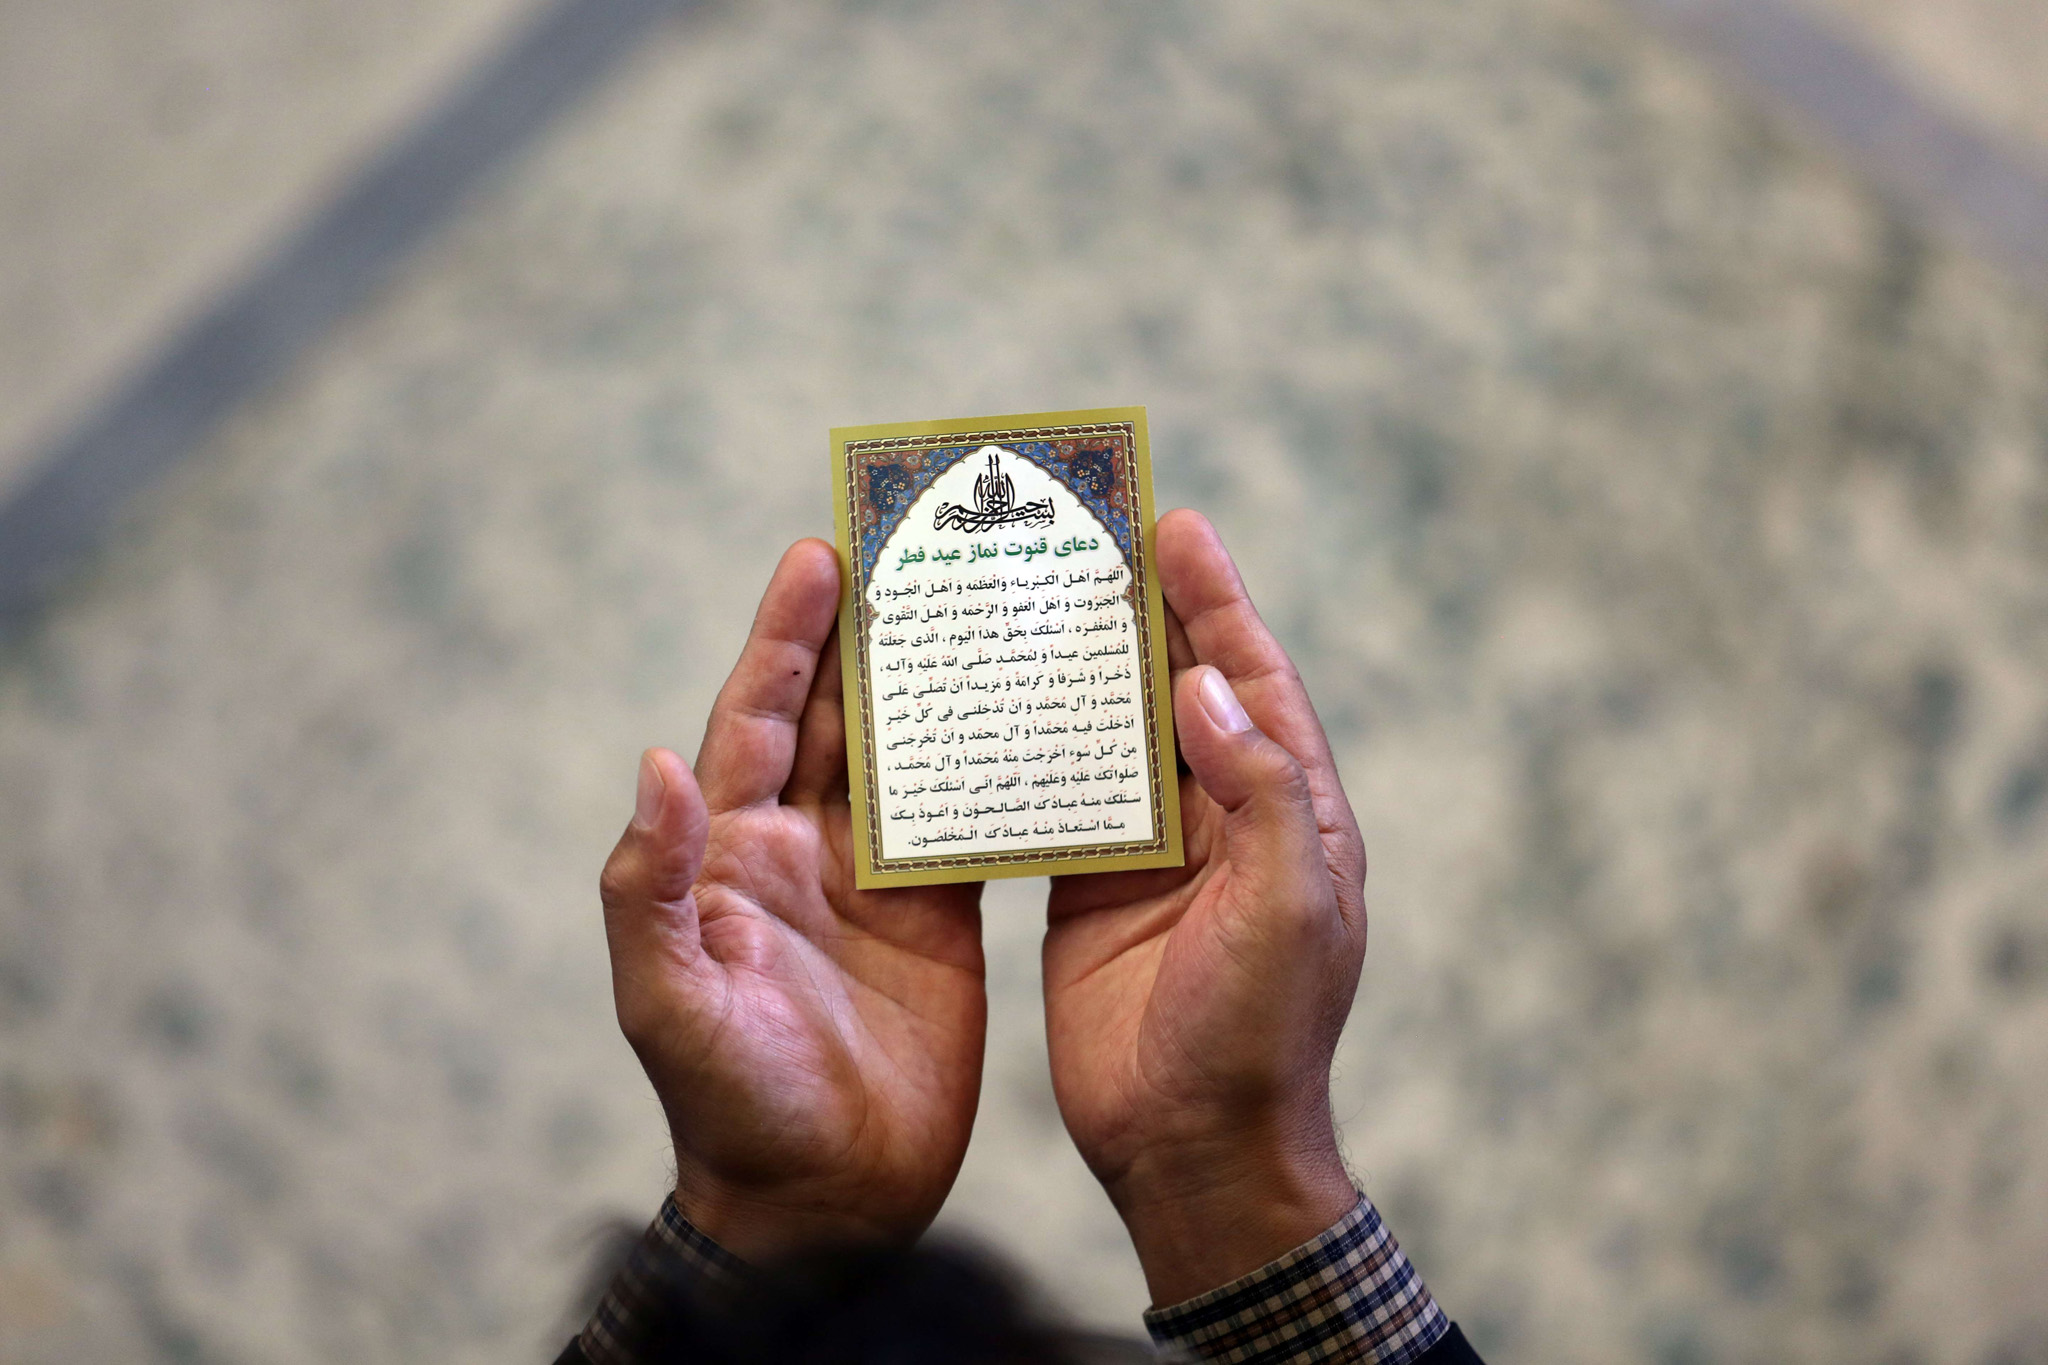 بسم الله الرحمن الرحیم
دعای قنوت نماز عید فطر
اَللّهُـمَّ اَهْـلَ الْکِـبْرِیـاءِ وَالْعَظَمَهِ وَ اَهْـلَ الْجُـودِ وَ
الْجَبَرُوتِ وَ اَهْلَ الْعَفوِ وَ الرَّحْمَه وَ اَهْـلَ التَّقْوی
وَ الْمَغْفِـرَه ، اَسْئلُکَ بِحَقِّ هذاَ الْیَومِ ، الَّذی جَعَلْتَهُ
لِلْمُسْلِمینَ عیـداً وَ لِمُحَمَّـدٍ صَلَّـی اللّهُ عَلَیْهِ وَآلِـهِ ،
ذُخْـراً وَ شَرَفاً وَ کَرامَةً وَ مَزیـداً اَنْ تُصَلِّـیَ عَلَـی
مُحَمَّدٍ وَ آلِ مُحَمَّدِ وَ اَنْ تُدْخِلَنـی فی کُلِّ خَیْـرٍ
اَدْخَلْتَ فیـهِ مُحَمَّداً وَ آلَ محمّد و اَنْ تُخْرِجَنـی
مِنْ کُـلِّ سُوءٍ اَخْرَجْتَ مِنْهُ مُحَمّداً وَ آلَ مُحَمَّـد ،
صَلَواتُکَ عَلَیْهِ وَعَلَیْهِمْ ، اَللّهُمَّ اِنّـی اَسْئلُکَ خَیْـرَ ما
سَـئَلَکَ مِنـهُ عِبـادُکَ الصَّـالِـحـوُنَ وَ اَعُـوذُ بِـکَ
مِـمَّا اسْـتَعـاذَ مِنْـهُ عِبـادُکَ الْـمُخْلَصُـون.